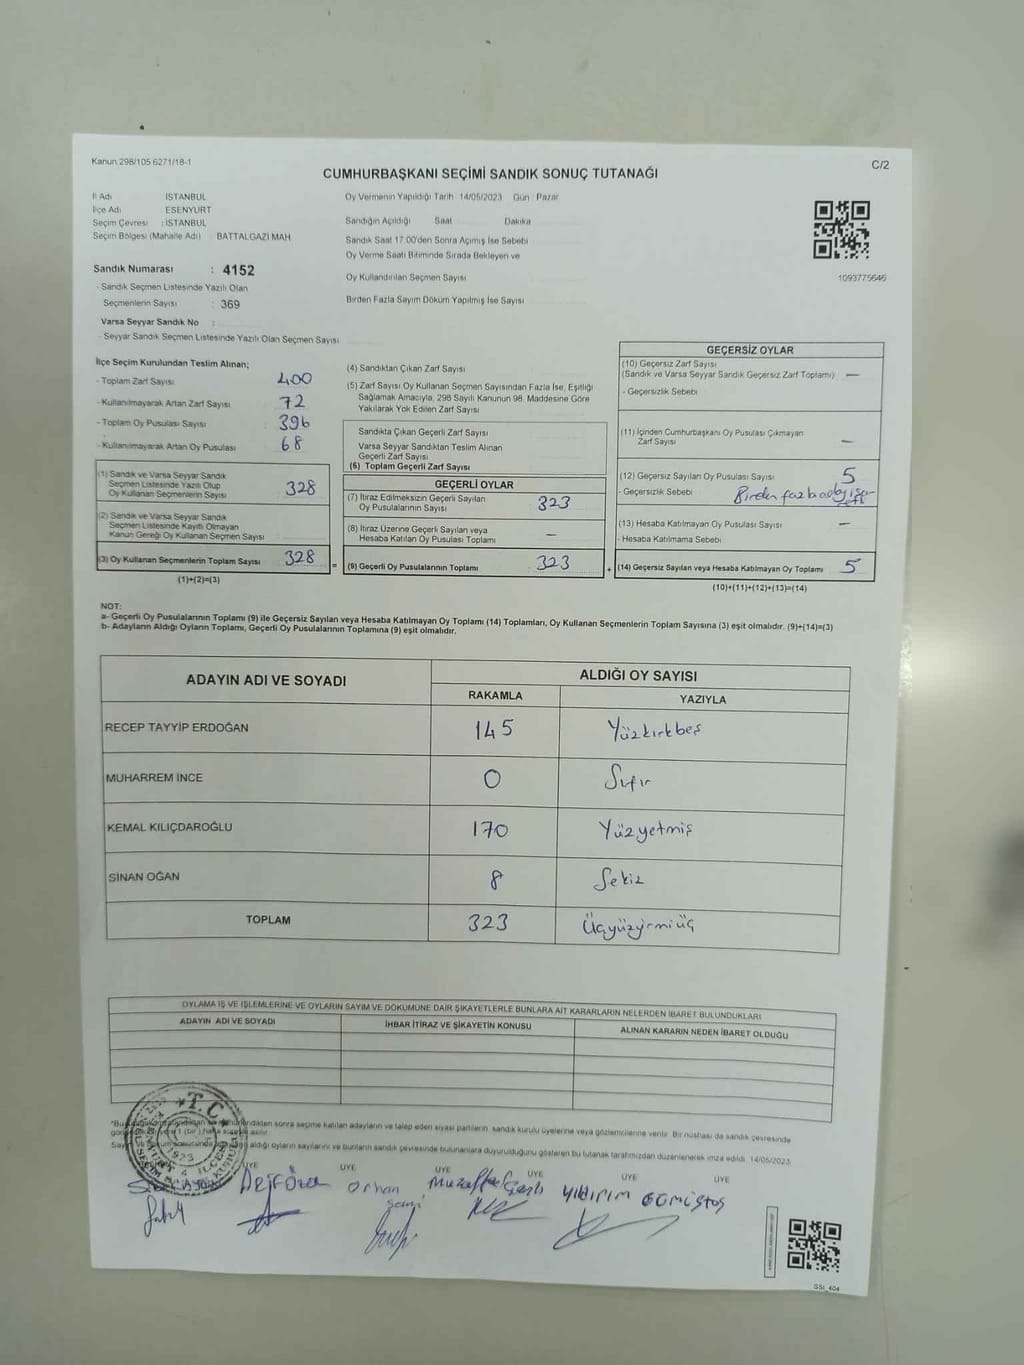 Kanun 298/105 6271/18-1
C/2
CUMHURBAŞKANI SEÇİMİ SANDIK SONUÇ TUTANAĞI
İl Adı İSTANBUL
İlçe Adı ESENYURT
Seçim Çevresi : İSTANBUL
Seçim Bölgesi (Mahalle Adı) BATTALGAZİ MAH
Sandık Numarası : 4152
- Sandık Seçmen Listesinde Yazılı Olan
Seçmenlerin Sayısı : 369
Varsa Seyyar Sandık No :
- Seyyar Sandık Seçmen Listesinde Yazılı Olan Seçmen Sayısı
Oy Vermenin Yapıldığı Tarih 14/05/2023 Gün Pazar
Sandığın Açıldığı Saat Dakika
Sandık Saat 17.00'den Sonra Açımış İse Sebebi
Oy Verme Saati Bitiminde Sırada Bekleyen ve
Oy Kullandırılan Seçmen Sayısı
Birden Fazla Sayım Döküm Yapılmış İse Sayısı
1093775646
İlçe Seçim Kurulundan Teslim Alınan;
- Toplam Zarf Sayısı 400
- Kullanılmayarak Artan Zarf Sayısı 72
- Toplam Oy Pusulası Sayısı 396
- Kullanılmayarak Artan Oy Pusulası 68
(1) Sandık ve Varsa Seyyar Sandık
Seçmen Listesinde Yazılı Olup
Oy Kullanan Seçmenlerin Sayısı 328
(2) Sandık ve Varsa Seyyar Sandık
Seçmen Listesinde Kayıtlı Olmayan
Kanun Gereği Oy Kullanan Seçmen Sayısı
(3) Oy Kullanan Seçmenlerin Toplam Sayısı 328
(1)+(2)=(3)
(4) Sandıktan Çıkan Zarf Sayısı
(5) Zarf Sayısı Oy Kullanan Seçmen Sayısından Fazla İse, Eşitliği
Sağlamak Amacıyla, 298 Sayılı Kanunun 98. Maddesine Göre
Yakılarak Yok Edilen Zarf Sayısı
Sandıkta Çıkan Geçerli Zarf Sayısı
Varsa Seyyar Sandıktan Teslim Alınan
Geçerli Zarf Sayısı
(6) Toplam Geçerli Zarf Sayısı
GEÇERLİ OYLAR
(7) İtiraz Edilmeksizin Geçerli Sayılan
Oy Pusulalarının Sayısı 323
(8) İtiraz Üzerine Geçerli Sayılan veya
Hesaba Katılan Oy Pusulası Toplamı —
= (9) Geçerli Oy Pusulalarının Toplamı 323
GEÇERSİZ OYLAR
(10) Geçersiz Zarf Sayısı
(Sandık ve Varsa Seyyar Sandık Geçersiz Zarf Toplamı) —
- Geçersizlik Sebebi
(11) İçinden Cumhurbaşkanı Oy Pusulası Çıkmayan
Zarf Sayısı —
(12) Geçersiz Sayılan Oy Pusulası Sayısı 5
- Geçersizlik Sebebi Birden fazla
(13) Hesaba Katılmayan Oy Pusulası Sayısı —
- Hesaba Katılmama Sebebi
+ (14) Geçersiz Sayılan veya Hesaba Katılmayan Oy Toplamı 5
(10)+(11)+(12)+(13)=(14)
NOT:
a- Geçerli Oy Pusulalarının Toplamı (9) ile Geçersiz Sayılan veya Hesaba Katılmayan Oy Toplamı (14) Toplamları, Oy Kullanan Seçmenlerin Toplam Sayısına (3) eşit olmalıdır. (9)+(14)=(3)
b- Adayların Aldığı Oyların Toplamı, Geçerli Oy Pusulalarının Toplamına (9) eşit olmalıdır.
ADAYIN ADI VE SOYADI ALDIĞI OY SAYISI
RAKAMLA YAZIYLA
RECEP TAYYİP ERDOĞAN 145 Yüzkırkbeş
MUHARREM İNCE 0 Sıfır
KEMAL KILIÇDAROĞLU 170 Yüzyetmiş
SİNAN OĞAN 8 Sekiz
TOPLAM 323 Üçyüzyirmiüç
OYLAMA İŞ VE İŞLEMLERİNE VE OYLARIN SAYIM VE DÖKÜMÜNE DAİR ŞİKAYETLERLE BUNLARA AİT KARARLARIN NELERDEN İBARET BULUNDUKLARI
ADAYIN ADI VE SOYADI İHBAR İTİRAZ VE ŞİKAYETİN KONUSU ALINAN KARARIN NEDEN İBARET OLDUĞU
sonra seçime katılan adayların ve talep eden siyasi partilerin sandık kurulu üyelerine veya gözlemcilerine verilir. Bir nüshası da sandık çevresinde
aldığı oyların sayılarını ve bunların sandık çevresinde bulunanlara duyurulduğunu gösteren bu tutanak tarafımızdan düzenlenerek imza edildi. 14/05/2023
T.C.
1923
ÜYE ÜYE ÜYE ÜYE ÜYE ÜYE
Orhan
Yıldırım Gümüştaş
GSI_404